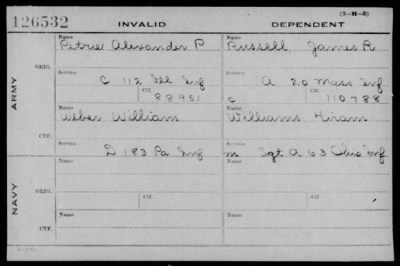 126532
INVALID
DEPENDENT
(3-M-5)
ARMY
ORIG.
Name
Petrie Alexander P
Name
Russell, James R
Service
C 112 Ill Inf
Service
A 20 Mass Inf
Ctf.
88951
C
Ctf.
110788
CTF.
Name
Weber William
Name
Williams, Hiram
Service
D 183 Pa Inf
Service
m Sgt A 63 Ohio Inf
NAVY
ORIG.
Name
Name
Ctf.
Ctf.
CTF.
Name
Name